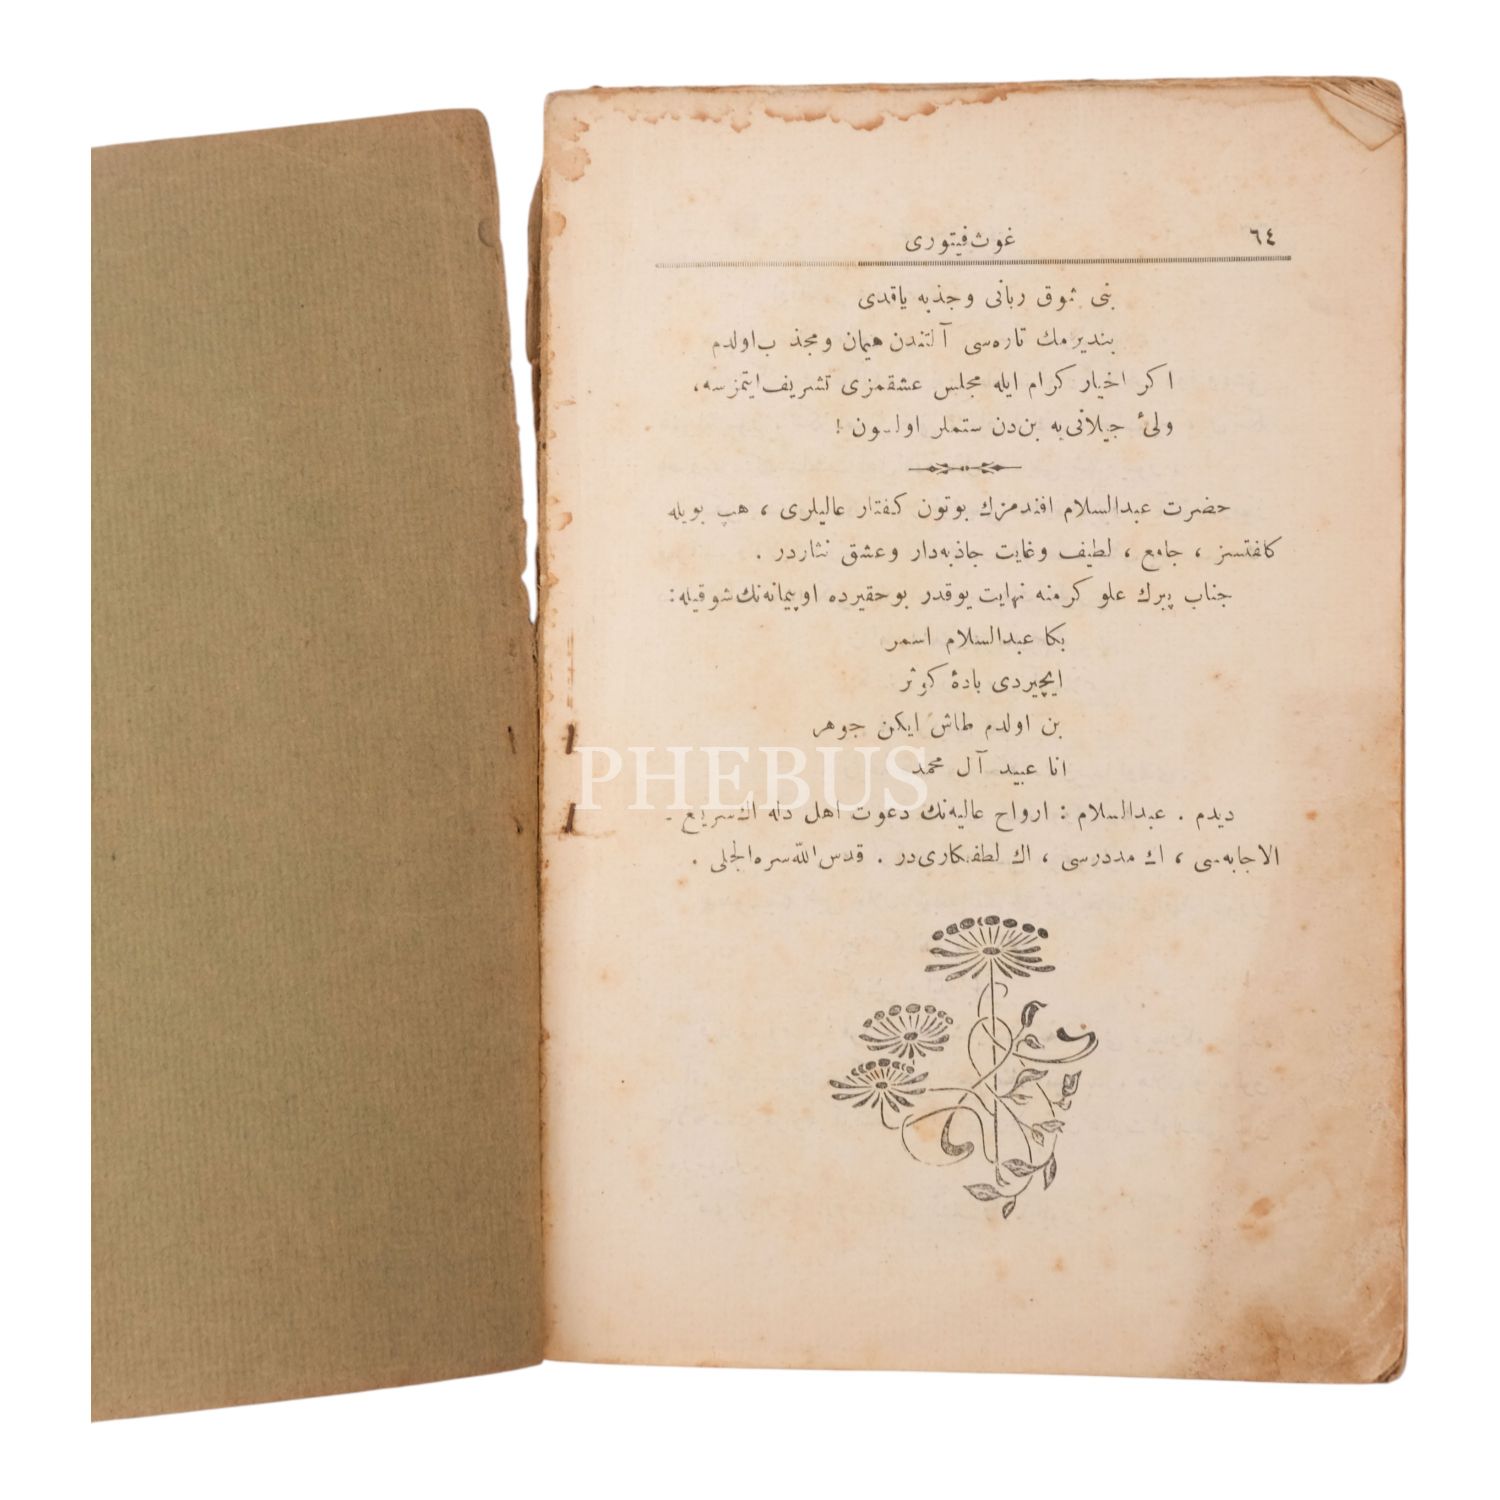 ٦٤
غوث فيتوری
بنی شوق ربانی وجذبه یاقدی
بندیرمك تاره‌سی آلتندن هیمان ومجذ ب‌اولدم
اكر اخیار كرام ایله مجلس عشقمزی تشریف‌ایتمزسه،
ولیٔ جیلانی‌یه بن‌دن ستملر اولسون !
حضرت عبدالسلام افندمزك بوتون كفتار عالیلری ، هپ بویله
كلفتسز ، جامع ، لطیف وغایت جاذبه‌دار وعشق نثاردر .
جناب پیرك علو كرمنه نهایت یوقدر بوحقیرده اوپیمانه‌نك‌شوقیله:
بكا عبدالسلام اسمر
ایچیردی بادۀ كوثر
بن اولدم طاش ایكن جوهر
انا عبید آل محمد
دیدم . عبدالسلام : ارواح عالیه‌نك دعوت اهل دله اك‌سریع -
الاجابه‌سی ، اك مددرسی ، اك لطفكاری‌در . قدس‌الله‌سره‌الجلی .
PHEBUS